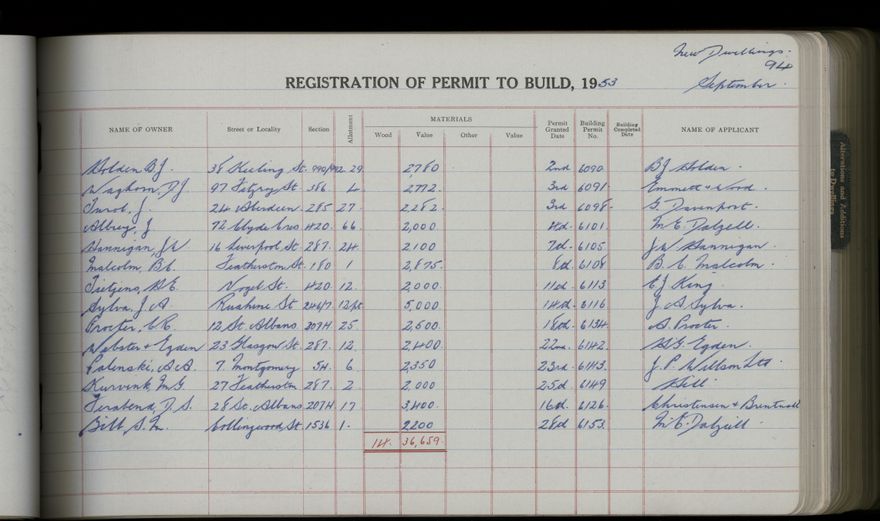 New Dwellings.
94
REGISTRATION OF PERMIT TO BUILD, 1953
September.
NAME OF OWNER Street or Locality Section Allotment MATERIALS Wood Value Other Value Permit Granted Date Building Permit No. Building Completed Date NAME OF APPLICANT
Alterations and Additions to Dwellings
Holden B J 38 Keeling St. 990/992 29 2780 2nd 6090 B J Holden.
Waghorn, D J 97 Fitzroy St 386 4 2772 3rd 6091 Emmett & Wood.
J. 24 Aberdeen 285 27 2,282 3rd 6098 G Davenport.
J. 72 Clyde Cres 420 66 2,000 4th 6101 M E Dalzell.
Hannigan, J W 16 Liverpool St 287 24 2100 7th 6105 J W Hannigan.
Malcolm, B C. Featherston St. 180 1 2,875 8th 6108 B. C. Malcolm.
Tietjens, H E. Vogel St. 420 12. 2,000 11th 6113 E J King.
Sylva, J A. Ruahine St 246/7 12pt 5,000 14th 6116 J A Sylva.
Procter, C C. 12 St Albans 207H 25 2,500 18th 6134 A. Procter.
Webster & Egden 23 Glasgow St. 287. 12 2,400 22nd 6142 H G Egden.
Palenski, A A. 7 Montgomery 54 6 2350 23rd 6143 J. P. Willson Ltd
M G 27 Featherston 287 2 2,000 25th 6149 Hill
D. S. 28 St. Albans 207H 17 3,400. 16th 6126 Christensen & Brentnall
Bill, S. M. Collingwood St 1536 1. 2200 28th 6153 M E. Dalzell.
14. 36,659.